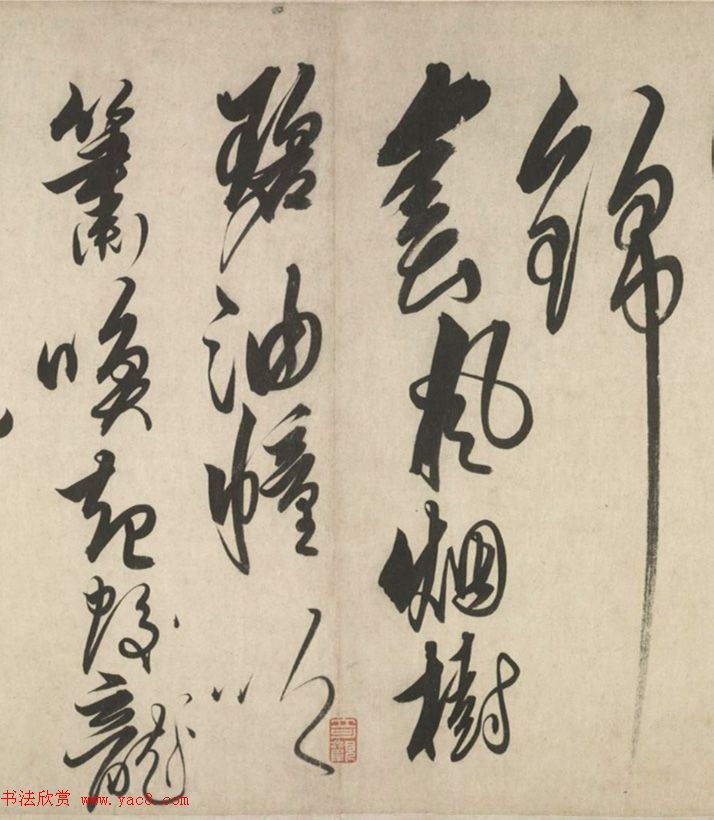 錦
雲風烟樹
碧油幢吹
簫喚起蛟龍
书法欣赏 www.yac8.com